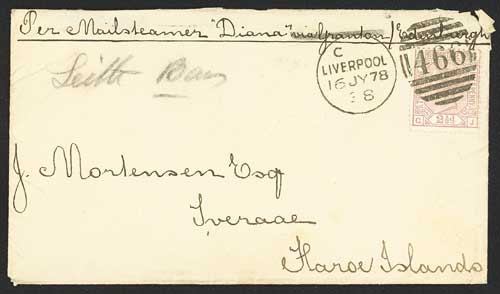 Per Mailsteamer "Diana" via Granton/Edenburgh
Leith
C
LIVERPOOL
16 JY 78
466
C 2½ J
J. Mortensen Esq
Tveraae
Faroe Islands